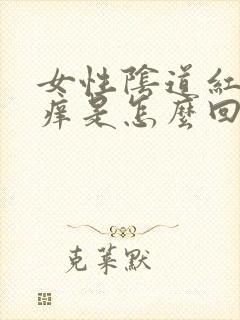 女性陰道紅
癢是怎麼回
克萊默